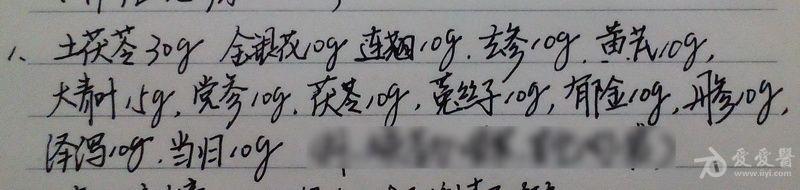 1、土茯苓30g 金银花10g 连翘10g、玄参10g、黄芪10g,
大青叶15g,党参10g、茯苓10g,菟丝子10g,郁金10g,丹参10g,
泽泻10g、当归10g
爱爱医
www.iiyi.com